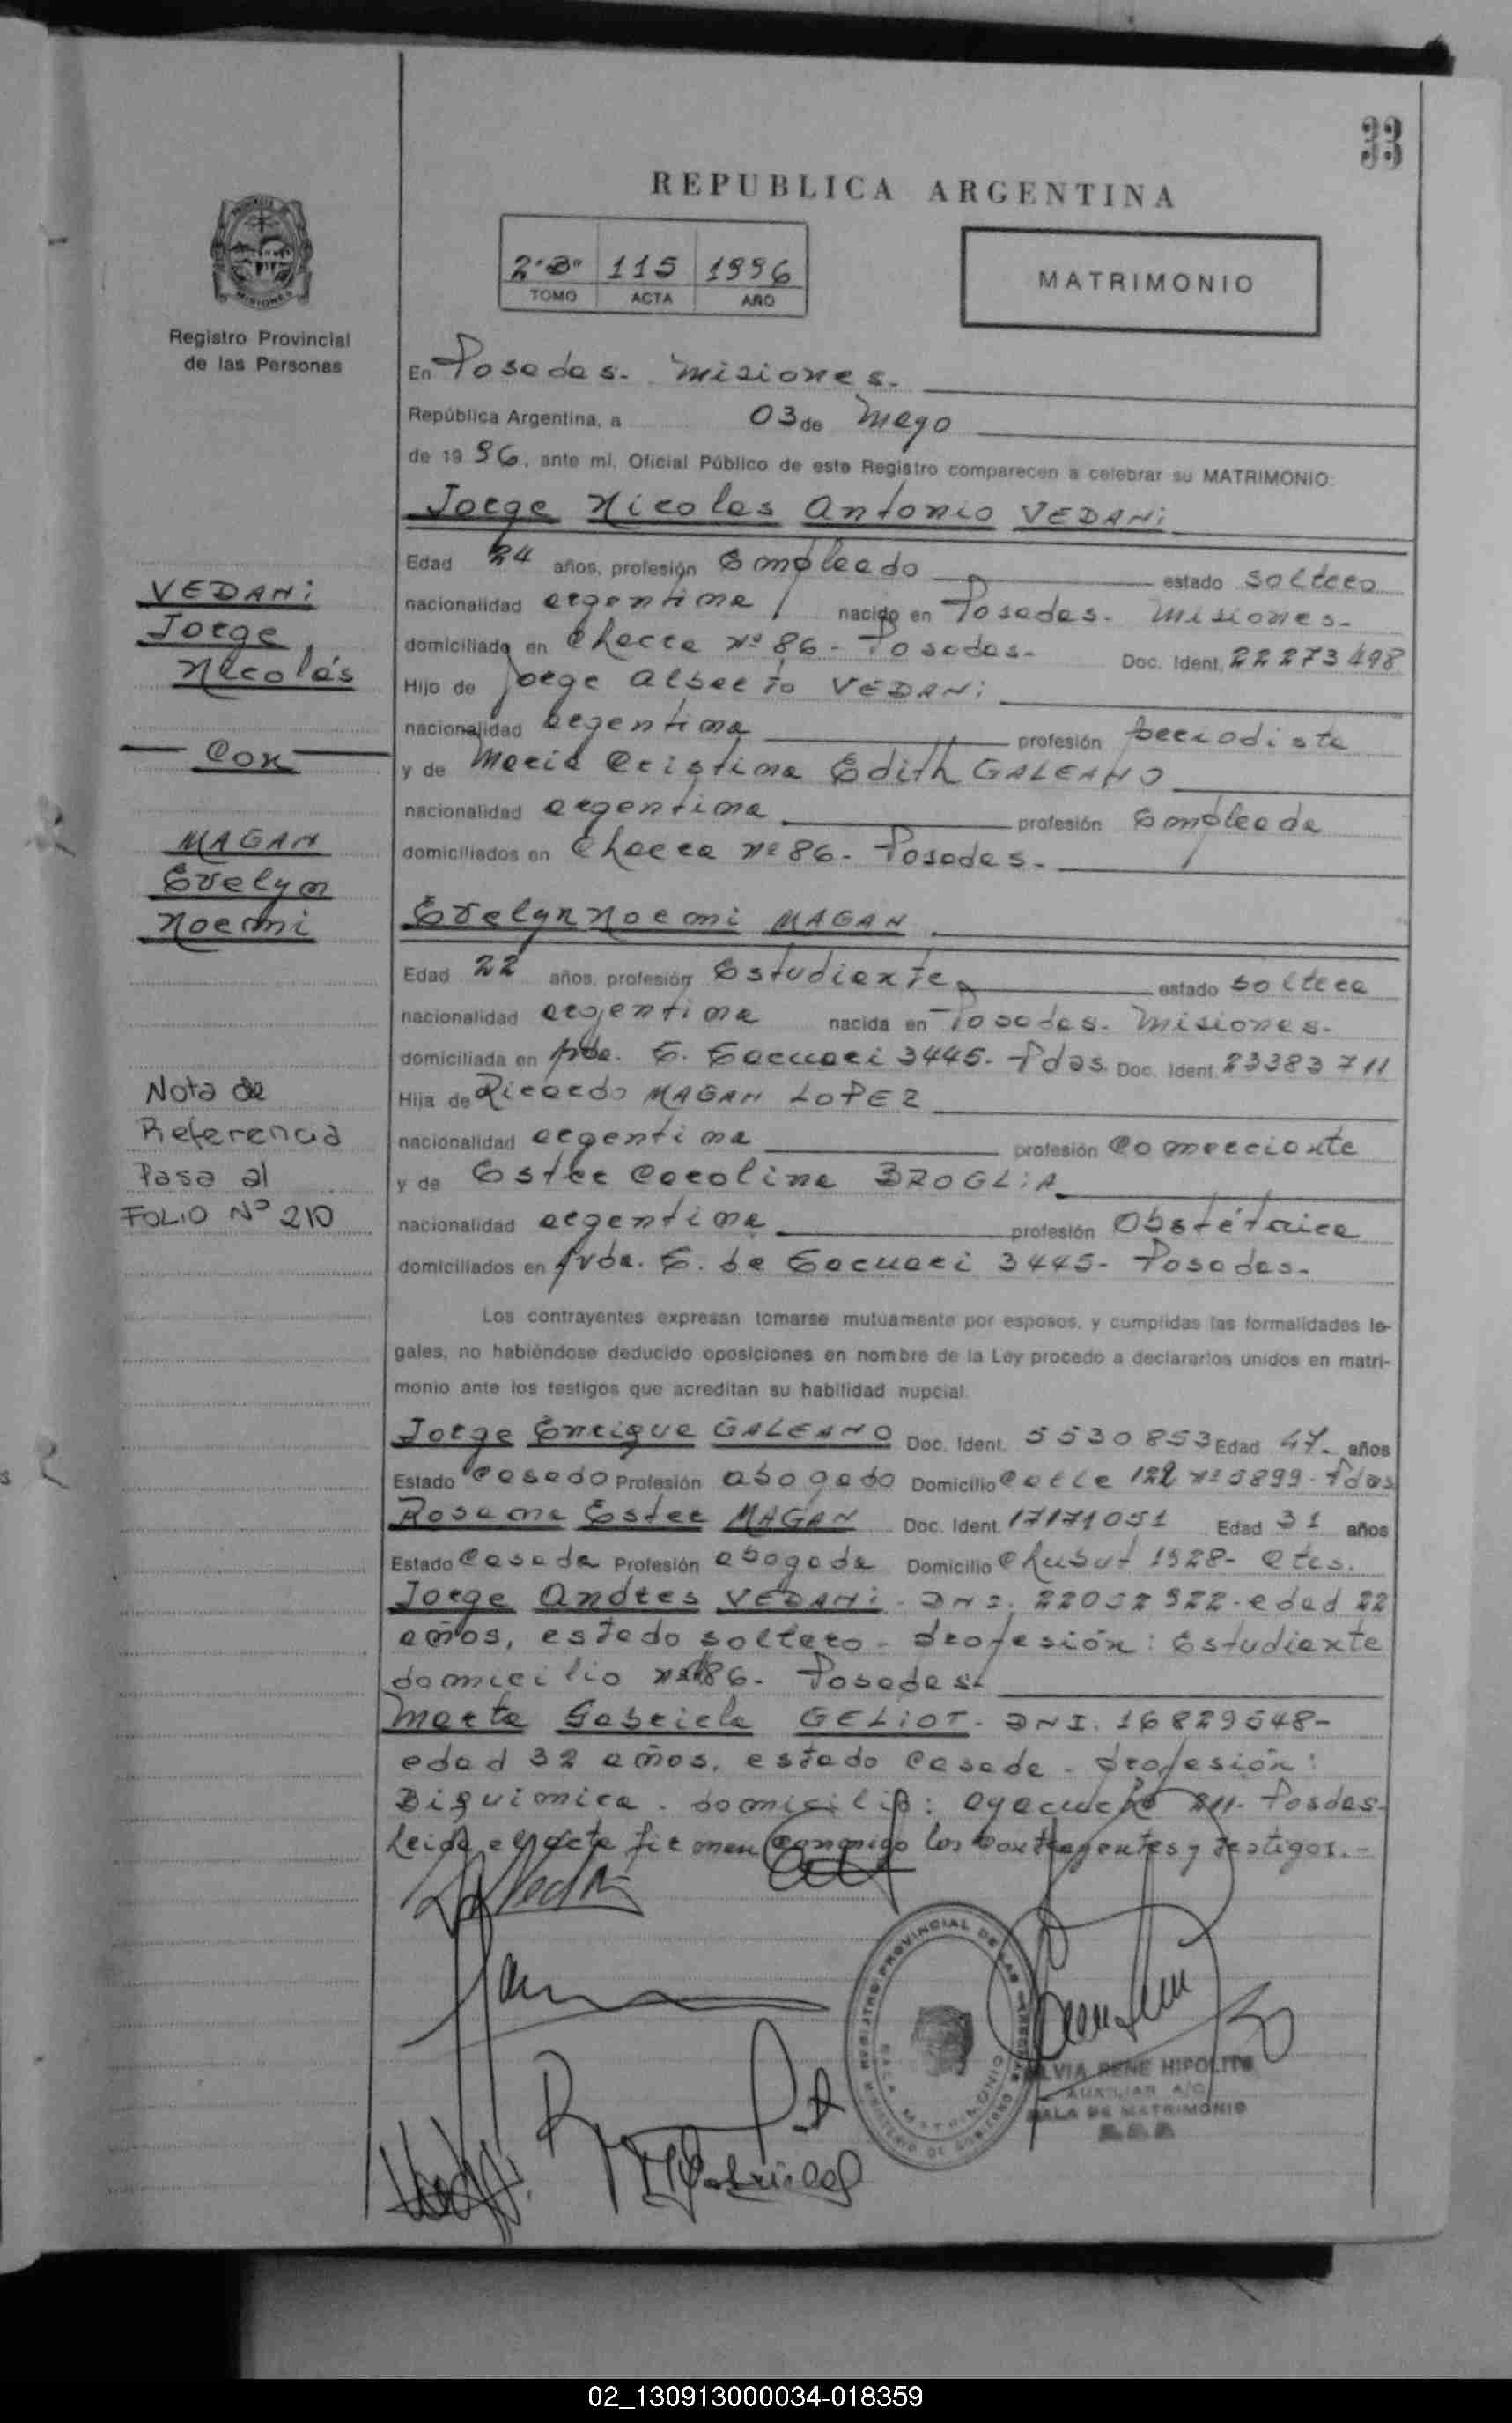 33
REPUBLICA ARGENTINA
2º Bº 115 1996
TOMO ACTA AÑO
MATRIMONIO
Registro Provincial
de las Personas
En Posadas. Misiones.
República Argentina, a 03 de Mayo
de 1996, ante mí, Oficial Público de este Registro comparecen a celebrar su MATRIMONIO:
Jorge Nicolas Antonio VEDANi
Edad 24 años, profesión Empleado estado soltero
nacionalidad argentina nacido en Posadas. Misiones.
domiciliado en Chacra Nº 86 - Posadas. Doc. Ident. 22273498
Hijo de Jorge Alberto VEDANi
nacionalidad argentina profesión periodista
y de Maria Cristina Edith GALEANO
nacionalidad argentina profesión Empleada
domiciliados en Chacra Nº 86. Posadas.
VEDANi
Jorge
Nicolás
Con
MAGAN
Evelyn
Noemi
Evelyn Noemi MAGAN
Edad 22 años, profesión Estudiante estado soltera
nacionalidad argentina nacida en Posadas. Misiones.
domiciliada en Avda. T. Tacuari 3445. Pdas. Doc. Ident. 23383711
Hija de Ricardo MAGAN LOPEZ
nacionalidad argentina profesión Comerciante
y de Ester Carolina BROGLiA
nacionalidad argentina profesión Obstétrica
domiciliados en Avda. T. de Tacuari 3445. Posadas.
Nota de
Referencia
Pasa al
FOLIO Nº 210
Los contrayentes expresan tomarse mutuamente por esposos, y cumplidas las formalidades le-
gales, no habiéndose deducido oposiciones en nombre de la Ley procedo a declararlos unidos en matri-
monio ante los testigos que acreditan su habilidad nupcial.
Jorge Enrique GALEANO Doc. Ident. 5530853 Edad 47 años
Estado Casado Profesión abogado Domicilio Calle 122 Nº 5899. Pdas
Rosana Ester MAGAN Doc. Ident. 17171051 Edad 31 años
Estado Casada Profesión abogada Domicilio Chubut 1928 - Ctes.
Jorge Andres VEDANi - DNI. 22052922. edad 22
años, estado soltero - profesión: Estudiante
domicilio 86. Posadas.
Marta Gabriela GELiOT - DNI. 16829648 -
edad 32 años, estado Casada - profesión:
Biquimica. domicilio: Ayacucho Posdas.
Leida el acta firman conmigo los contrayentes y testigos. -
REGISTRO PROVINCIAL DE LAS PERSONAS
SALA MATRIMONIO
MINISTERIO DE GOBIERNO
SILVIA RENE HIPOLITO
AUXILIAR A/C
SALA DE MATRIMONIO
02_130913000034-018359